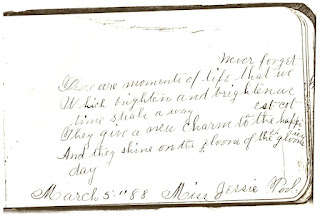 Never forget
There are moments of life that we
Which brighten and brighten as
time steals away
They give a new charm to the happ
And they shine on the gloom of the gloom
day
March 5" 88 Miss Jessie Pool.